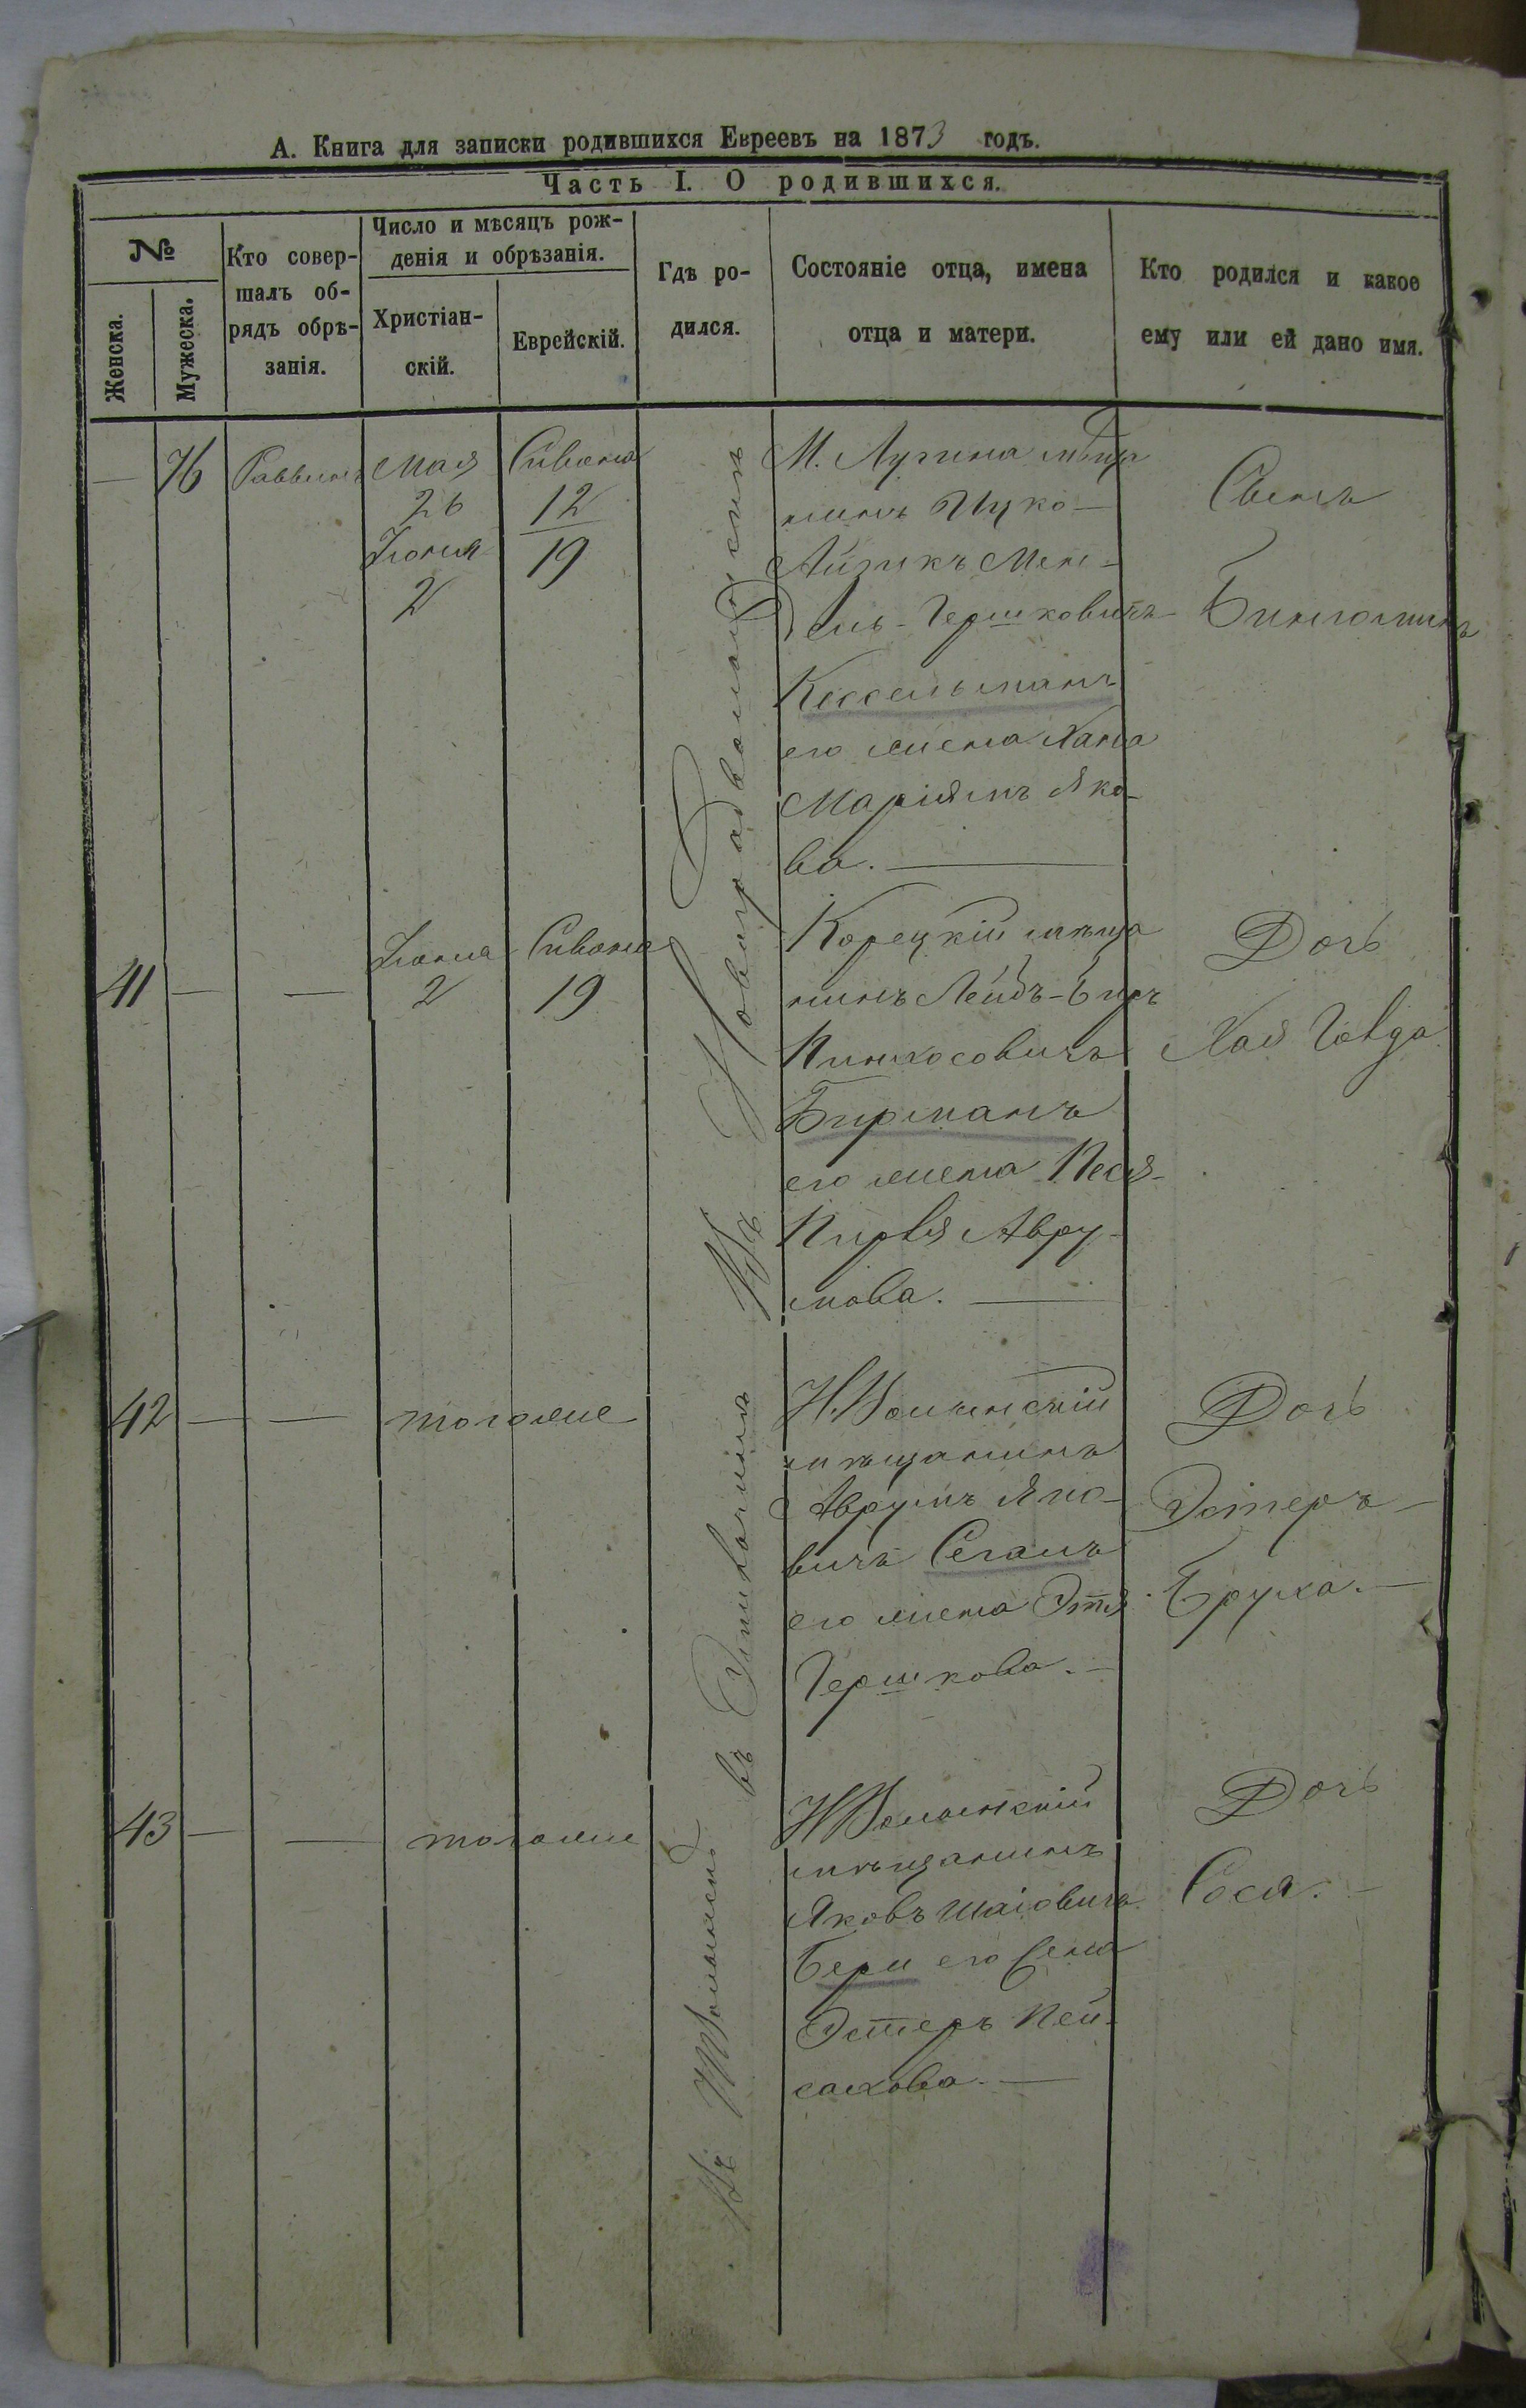 А. Книга для записки родившихся Евреевъ на 1873 годъ.
Часть I. О родившихся.
№
Женска.
Мужеска.
Кто совер-
шалъ об-
рядъ обрѣ-
занія.
Число и мѣсяцъ рож-
денія и обрѣзанія.
Христіан-
скій.
Еврейскій.
Гдѣ ро-
дился.
Состояніе отца, имена
отца и матери.
Кто родился и какое
ему или ей дано имя.
— 76 Раввинъ
Мая
26
Іюня
2
Сивана
12
19
Въ Новоградволынскѣ
М. Лугина мѣща
нинъ Ицко-
Айзикъ Мен-
дель-Гершковичъ
Кессельманъ
его жена Хана
Маріямъ Яко-
ва. —
Сынъ
Биніоминъ
41 — —
Іюня
2
Сивана
19
Корецкій мѣща
нинъ Лейбъ-Беръ
Пинхосовичъ
Бирманъ
его жена Песя-
Пирля Авру-
мова. —
Дочь
Хая Голда
42 — — тогоже
въ
Н.Волынскій
мѣщанинъ
Аврумъ Яно-
вичъ Сегалъ
его жена Этя
Гершкова. —
Дочь
Эстеръ-
Бруха. —
43 — — тогоже
Въ НВолынскѣ
НВолынскій
мѣщанинъ
Яковъ Шаіовичъ
Берм его жена
Эстеръ Пей-
сахова. —
Дочь
Сося. —